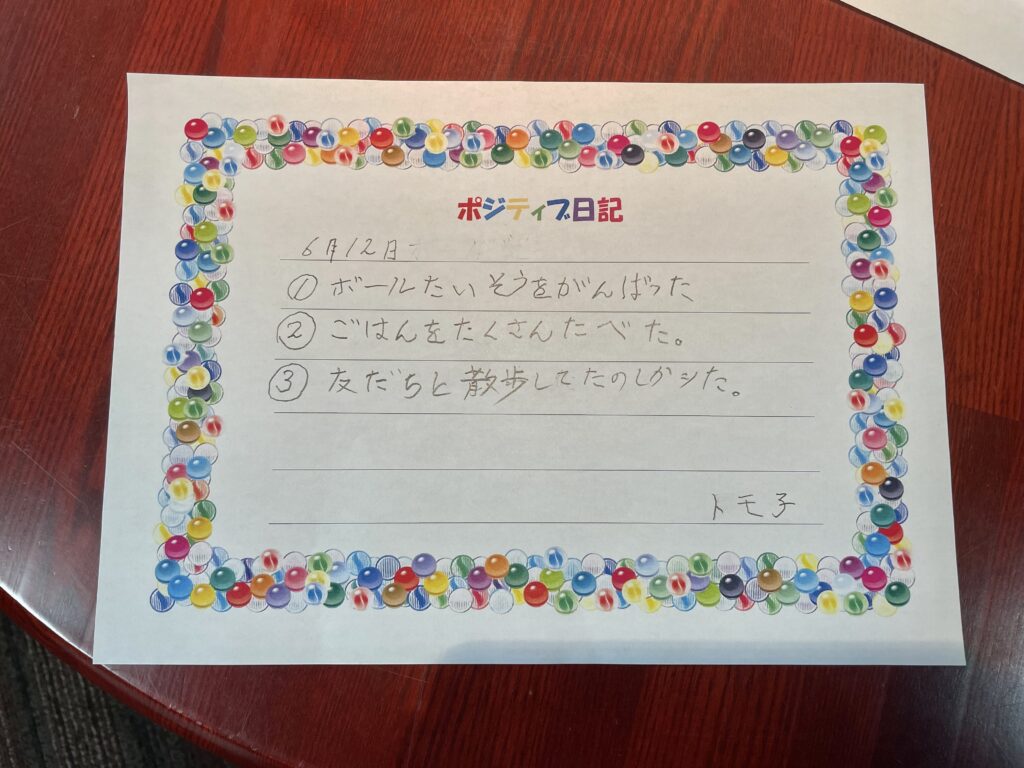 ポジティブ日記
6月12日
① ボールたいそうをがんばった
② ごはんをたくさんたべた。
③ 友だちと散歩してたのしかった。
トモ子